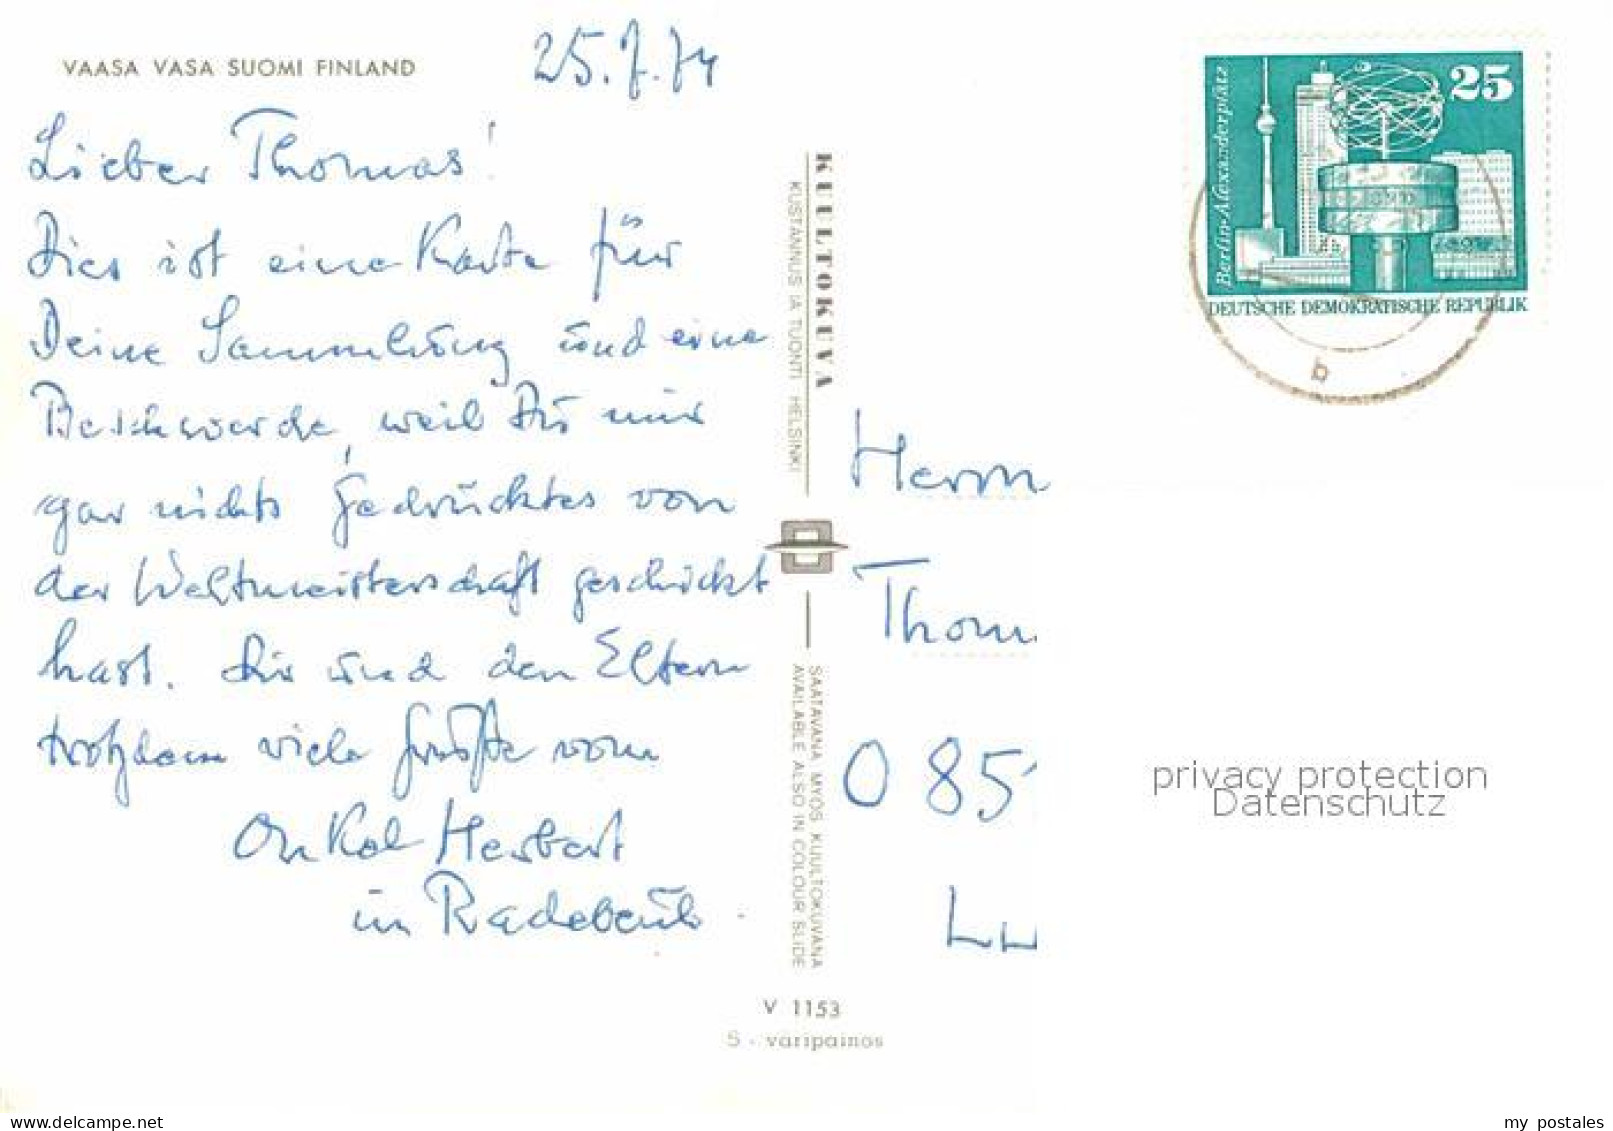 VAASA VASA SUOMI FINLAND
25.7.74
Lieber Thomas!
Dies ist eine Karte für
Deine Sammlung und eine
Beschwerde, weil Du mir
gar nichts Gedrucktes von
der Weltmeisterschaft geschickt
hast. Dir und den Eltern
trotzdem viele Grüße vom
Onkel Herbert
in Radebeul.
KUULTOKUVA
KUSTANNUS JA TUONTI HELSINKI
SAATAVANA MYÖS KUULTOKUVANA
AVAILABLE ALSO IN COLOUR SLIDE
V 1153
S - väripainos
Berlin-Alexanderplatz
25
DEUTSCHE DEMOKRATISCHE REPUBLIK
b
Herrn
Thom
O 851
privacy protection
Datenschutz
www.delcampe.net
my postales